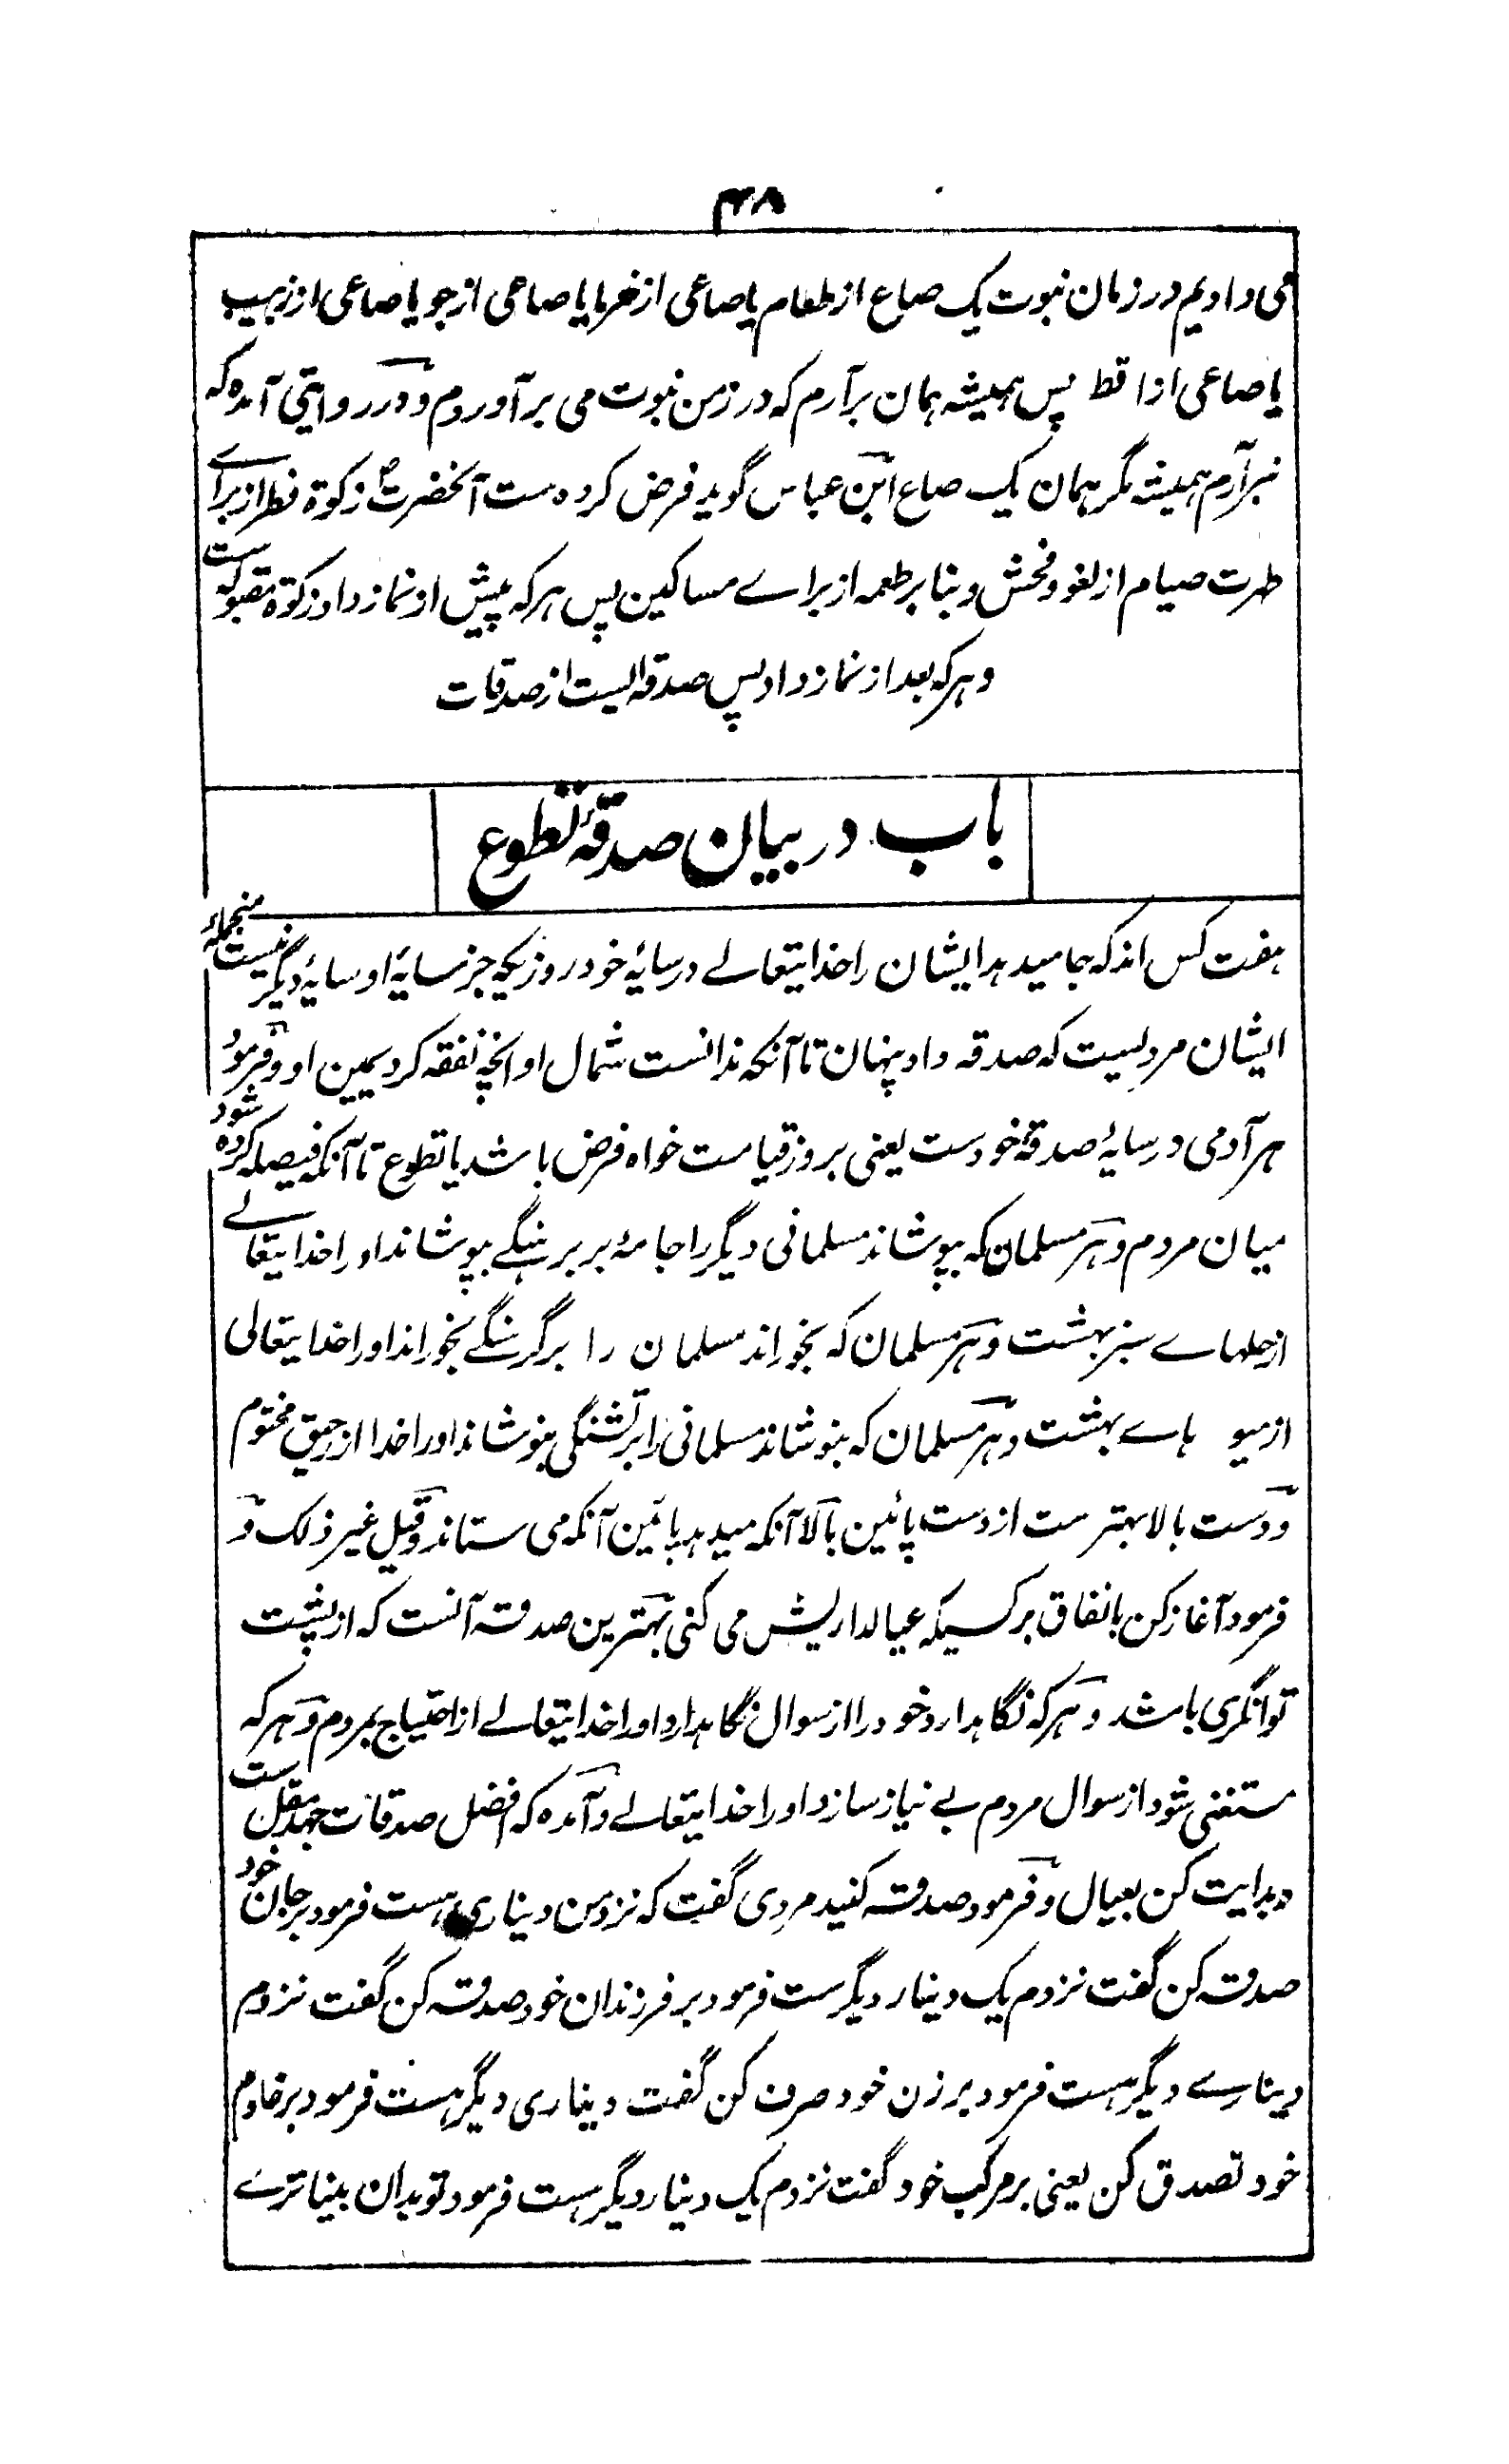 ۴۸
می دادیم در زمان نبوت یک صاع از طعام یا صاعی از خرما یا صاعی از جو یا صاعی از زبیب
یا صاعی از اقط پس همیشه همان برآرم که در زمن نبوت می برآوردم و در روایتی آمده که
نبرآرم همیشه مگر همان یک صاع ابن عباس گوید فرض کرده ست آنحضرتؐ زکوة فطر از برائے
طهرت صیام از لغو و فحش و بنا بر طعمه از برائے مساکین پس هر که پیش از نماز داد زکوة مقبوله ست
و هر که بعد از نماز داد پس صدقه ایست از صدقات
باب در بیان صدقۂ تطوع
هفت کس اند که جا میدهد ایشان را خدایتعالے در سایۂ خود روزیکه جز سایۂ او سایۂ دیگر نیست منجملۂ
ایشان مردیست که صدقه داد پنهان تا آنکه ندانست شمال او آنچه نفقه کرد یمین او و فرمود
هر آدمی در سایۂ صدقۂ خودست یعنی بروز قیامت خواه فرض باشد یا تطوع تا آنکه فیصله کرده شود
میان مردم و هر مسلمان که بپوشاند مسلمانی دیگر را جامۂ بر برهنگے بپوشاند او را خدایتعالے
از حلهاے سبز بهشت و هر مسلمان که بخوراند مسلمان را برگرسنگے بخوراند او را خدایتعالی
از میو هاے بهشت و هر مسلمان که بنوشاند مسلمانی را بر تشنگی بنوشاند او را خدا از رحیق مختوم
و دست بالا بهترست از دست پائین بالا آنکه میدهد پائین آنکه می ستاند و قیل غیر ذلک و
فرمود آغاز کن بانفاق بر کسیکه عیالداریش می کنی بهترین صدقه آنست که از پشت
توانگری باشد و هر که نگاهدارد خود را از سوال نگاهدارد او را خدایتعالے از احتیاج بمردم و هر که
مستغنی شود از سوال مردم بے نیاز سازد او را خدایتعالے و آمده که افضل صدقات جهد مقل ست
و بدایت کن بعیال و فرمود صدقه کنید مردی گفت که نزد من دیناری هست فرمود بر جان خود
صدقه کن گفت نزدم یک دینار دیگرست فرمود بر فرزندان خود صدقه کن گفت نزدم
دینارے دیگر هست فرمود بر زن خود صرف کن گفت دیناری دیگر هست فرمود بر خادم
خود تصدق کن یعنی بر مرکب خود گفت نزدم یک دینار دیگر هست فرمود تو بدان بیناترے